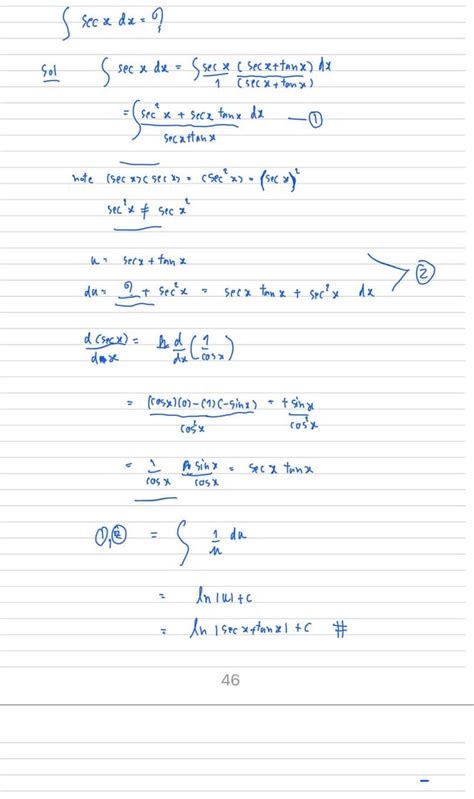 ∫ sec x dx = ?
Sol ∫ sec x dx = ∫ sec x/1 (sec x + tan x)/(sec x + tan x) dx
= ∫ (sec² x + sec x tan x)/(sec x + tan x) dx — ①
note (sec x)(sec x) = (sec² x) = (sec x)²
sec² x ≠ sec x²
u = sec x + tan x
du = ? + sec² x = sec x tan x + sec² x dx ②
d(sec x)/dx = d/dx (1/cos x)
= ((cos x)(0) - (1)(-sin x))/cos² x = + sin x/cos² x
= 1/cos x sin x/cos x = sec x tan x
①,② = ∫ 1/u du
= ln |u| + c
= ln |sec x + tan x| + c #
46